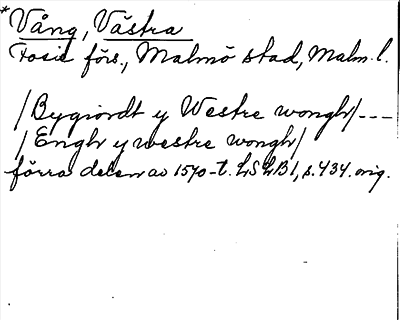 * Vång, Västra
Fosie förs., Malmö stad, Malm. l.
/Bygiordt y Westre wongh/---
/Engh y westre wongh/
förra delen av 1570-t. LSLB1, s. 434. orig.